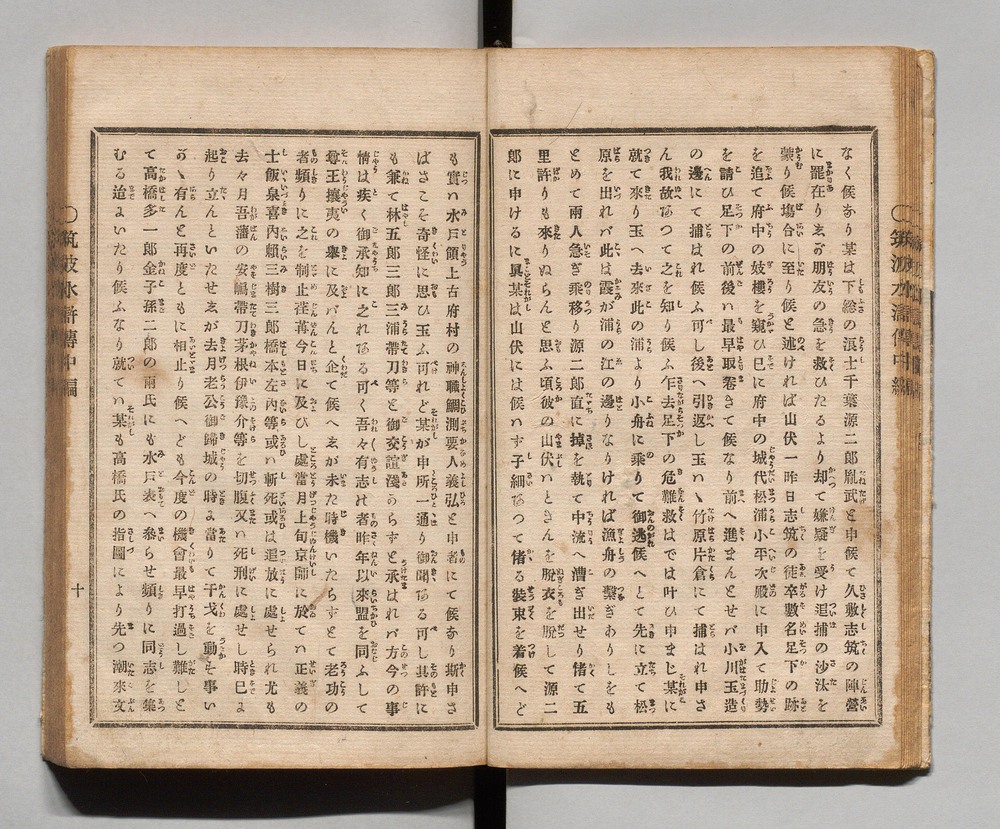 なく候なり某は下總の浪士千葉源二郎胤武と申候て久敷志筑の陣營
に罷在りゑが朋友の急を救ひたるより却て嫌疑を受け追捕の沙汰を
蒙り候塲合に至り候と述ければ山伏一昨日志筑の徒卒數名足下の跡
を追て府中の妓樓を窺ひ巳に府中の城代松浦小平次殿に申入て助勢
を請ひ足下の前後い最早取巻きて候なり前へ進まんとせバ小川玉造
の邊にて捕はれ候ふ可し後へ引返し玉ハヽ竹原片倉にて捕はれ申さ
ん我故あつて之を知り候ふ乍去足下の危難救はでは叶ひ申まじ某に
就て來り玉へ去來此の浦より小舟に乘りて御遁候へとて先に立て松
原を出れバ此は霞が浦の江の邊りなりければ漁舟の繫ぎありしをも
とめて兩人急ぎ乘移り源二郎直に掉を執て中流へ漕ぎ出せり偖て五
里許りも來りぬらんと思ふ頃彼の山伏いときんを脱衣を脱して源二
郎に申けるに眞某は山伏には候ハず子細あつて偖る裝束を着候へど
も實ハ水戸領上古府村の神職鯛測要人義弘と申者にて候なり斯申さ
ばさこそ奇怪に思ひ玉ふ可れど某が申所一通り御聞ある可し其許に
も兼て林五郎三郎三浦帶刀等と御交誼淺からずと承はれバ方今の事
情は疾く御承知に之れある可く吾々有志れ者昨年以來盟を同ふして
尊王攘夷の擧に及バんと企て候へゑが未た時機いたらずとて老功の
者頻りに之を制止荏苒今日に及びし處當月上旬京師に於てい正義の
士飯泉喜内頼三樹三郎橋本左内等或ハ斬死或は追放に處せられ尤も
去々月吾藩の安嶋帶刀茅根伊豫介等を切腹又ハ死刑に處せし時巳よ
起り立んといたせゑが去月老公御歸城の時よ當りて干戈を動を事い
いヽ有んと再度ともに相止り候へども今度の機會最早打過し難しと
て高橋多一郎金子孫二郎の兩氏にも水戸表へ參らせ頻りに同志を集
むる迫よいたり候ふなり就てハ某も高橋氏の指圖により先つ潮來文
〇筑波水滸傳中編
〇筑波水滸傳中編
十